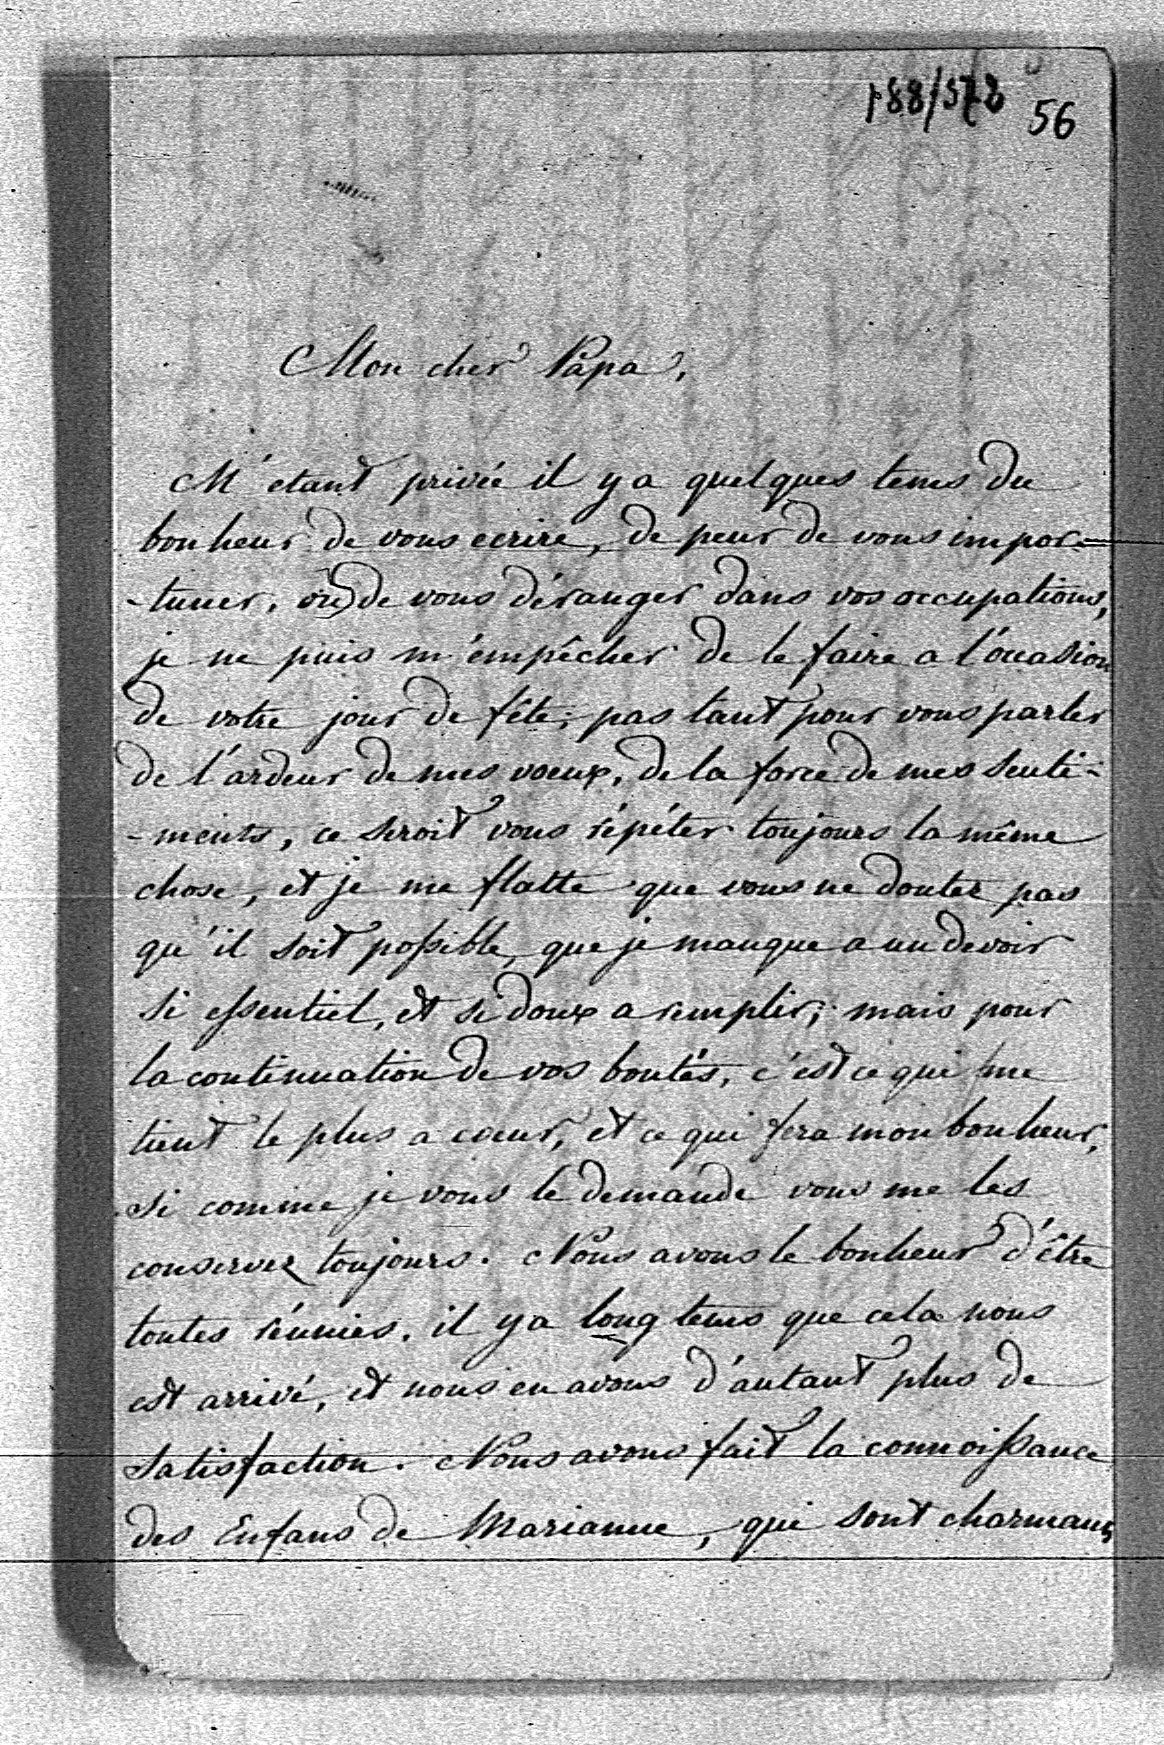 188/572 56
Mon cher Papa,
M'étant privée il y a quelques tems du
bonheur de vous ecrire, de peur de vous impor-
-tuner, ou de vous déranger dans vos occupations,
je ne puis m'empêcher de le faire a l'occasion
de votre jour de fête; pas tant pour vous parler
de l'ardeur de mes voeux, de la force de mes senti-
-ments, ce seroit vous répéter toujours la même
chose, et je me flatte que vous ne doutez pas
qu'il soit possible que je manque a un devoir
si essentiel, et si doux a remplir; mais pour
la continuation de vos bontés, c'est ce qui me
tient le plus a coeur, et ce qui fera mon bonheur,
si comme je vous le demande vous me les
conservez toujours. Nous avons le bonheur d'être
toutes réunies, il y a long tems que cela nous
est arrivé, et nous en avons d'autant plus de
satisfaction. Nous avons fait la connoissance
des Enfans de Marianne, qui sont charmans